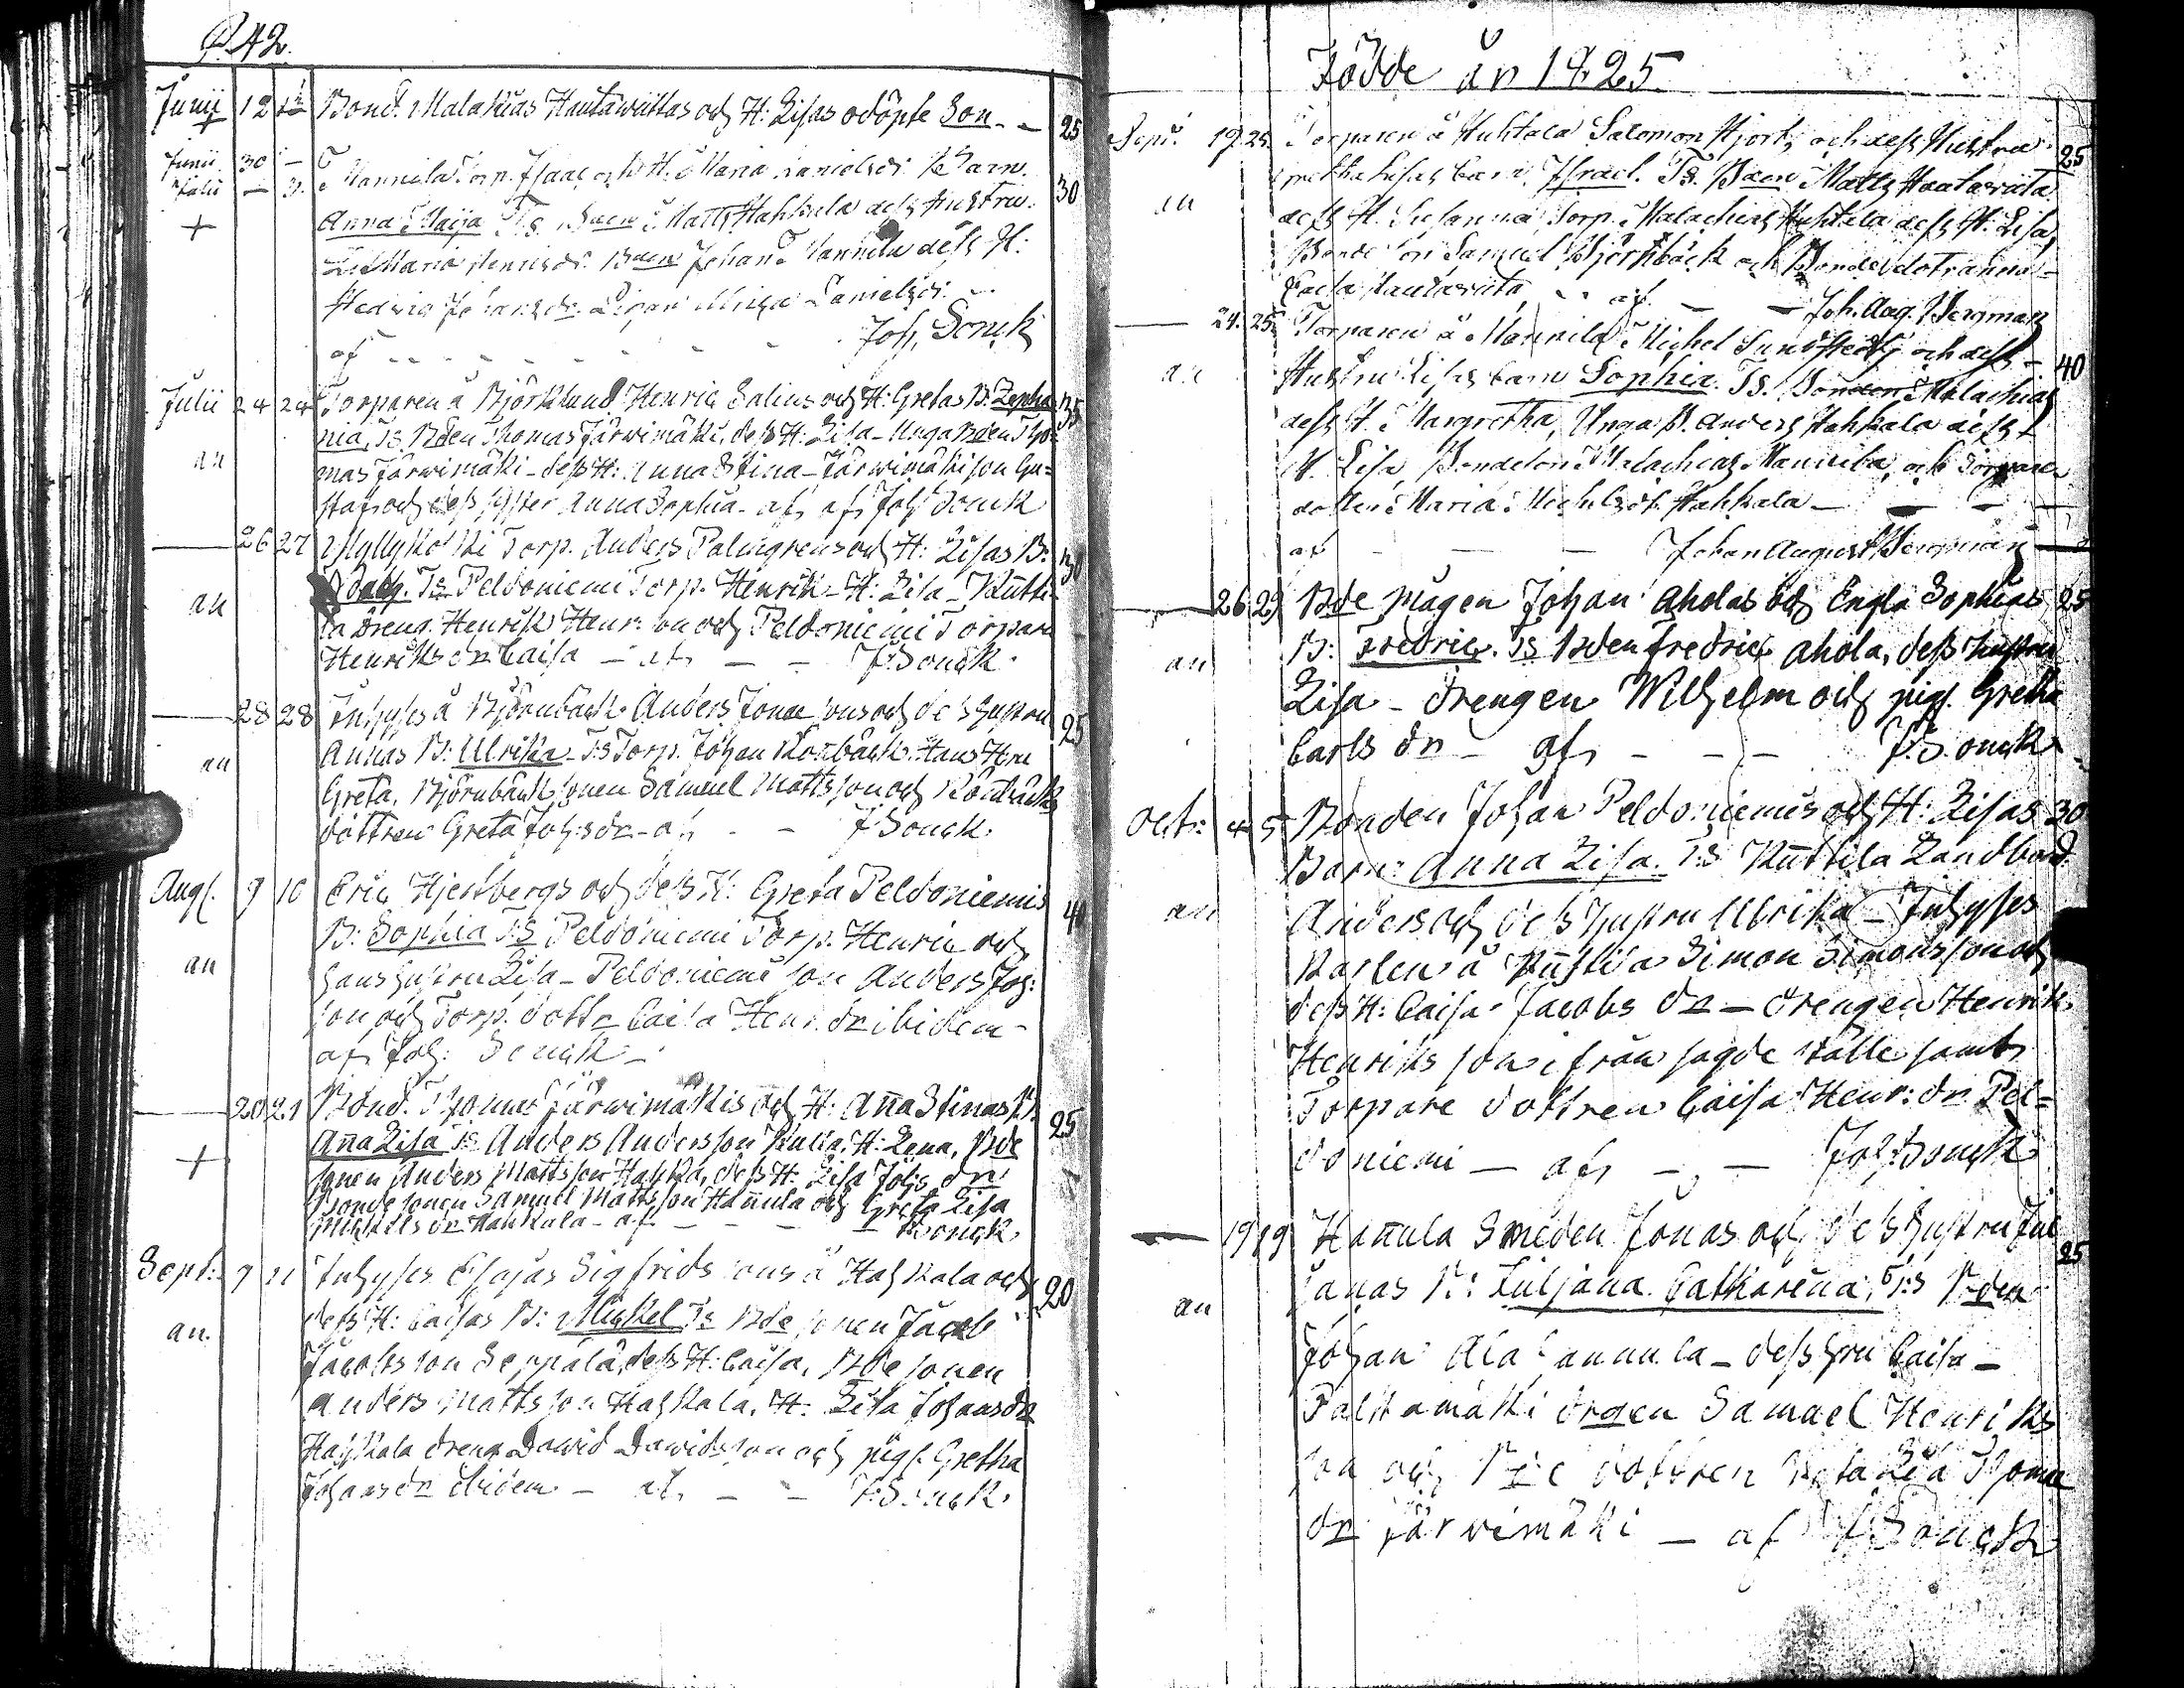 P. 42.
Junii 12 Bond. Malakias Hautawiitas och H: Lisas odöpte Son - - 25
Junii 30 -
Julii - 3. Mannila Torp. Isaac och H. Maria Danielsdr Barn. 30
+ Anna Maija Ts. Matts Hahkala dess hustru
Maria Henricsdr. Johan Mannila dess H:
Hedvig Johansdr. Pigan Danielsdr
af - - - - Joh. Sonck
Julii 24 24 Torparen å Björklund Henric Salius och H: Gretas B: Zepha 35
nia, Ts. Bden Thomas Järwimäki, dess H: Lisa - Unga Bden Tho
an mas Järwimäki - dess H: Anna Stina - Järwimäki son Gu=
staf och dess syster Anna Sophia - af Joh Sonck
26 27 Myllykoski Torp. Anders Palmgrens och H: Lisas B: 30
Ts Peldoniemi Torp. Henrik - H: Lisa - Kutti
an la Dreng. Henrik Henr: son och Peldoniemi Torpare
Henriks dr Caisa - af - - J. Sonck.
28 28 Inhyses å Björnbäck Anders Jonæ sons och dess hustru 25
an Annas B: Ulrika - Ts Torp. Johan Hans Hru
Greta, Björnbäck sonen Samuel Mattsson och
dottren Greta Johsdr - af - - J Sonck.
Aug. 9 10 Eric Hjertbergs och dess H: Greta Peldoniemis 40
B: Sophia Ts Peldoniemi Torp. Henric och
an hans hustru Lisa - Peldoniemi son Anders Joh:
son och Torp. dottr Caisa Henr. dr ibidem -
af Joh: Sonck -
20 21 Bond. Thomas Järwimäkis och H: Aña Stinas B. 25
Aña Lisa Ts Anders Andersson H: Lena, Bde
+ sonen Anders Mattsson dess H: Lisa Johs dr
Bonde sonen Samuel Mattsson Hañula och Greta Lisa
Michels dr Hahkala - af - - - - Sonck.
Sept: 9 11 Inhyses Esajas Sigfrids sons å Hahkala och 20
dess H: Caisas B: Mickel Ts Bde sonen Jacob
an. Jacobsson Seppälä, dess H: Caisa, Bde sonen
Anders Mattsson Hahkala, H: Lisa Johansdr
Hahkala dreng Dawid Dawidsson och pig. Gretha
Johansdr ibidem - af - - J: Sonck.
Födde år 1825.
Sept: 19 25 Torparen å Huhtala Salomon Hjort, och dess Hustru 25
Lisas barn Israel. Ts. Baen Matts Hautawiita
an dess H. Susanna, Torp. Malachias Huhtala dess H. Lisa,
Bonde son Samuel Björkbäck och Bondedotranna
Caisa Hautawiita, - - af - - Joh. Aug. Bergman
24. 25 Torparen å Mannila Michel Sundstedt och dess - 40
an Hustru Lisas barn Sophia. Ts. Bonden Malachias
dess H. Margretha, Unga B. Anders Hahkala dess
H. Lisa, Bondeson Malachias Mannila, och Torpare
dottern Maria Michelsdr. Hahkala - - - -
af - - - Johan August Bergman
26 29 Bde mågen Johan Aholas och Engla Sophias 25
an B: Fredric. Ts Bden Fredric Ahola, dess hustru
Lisa - drengen Wilhelm och pig. Gretha
Carls dr - af - - - J: Sonck
Oct: 4 5 Bonden Johan Peldoniemis och H: Lisas 30
Barn: Anna Lisa. Ts Kuttila Landbond
an Anders och dess hustru Ulrika - Inhyses
Karlen å Kuttila Simon Simonsson och
dess H: Caisa Jacobs dr - drengen Henrik
Henriks son ifrån sagde ställe samt
Torpare dottren Caisa Henr: dr Pel=
doniemi - af - - Joh: Sonck
19 19 Hañula Smeden Jonas och dess hustru Jul 25
janas B: Juljana Catharena, Ts Bden
an Johan Ala annula - dess hru Caisa -
Palkamäki drgen Samuel Henriks
son och Bde dottren Lisa Thomæ
dr Järwimäki - af J Sonck